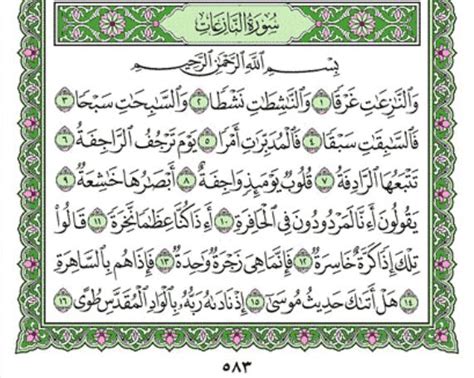 سورة النازعات
بسم الله الرحمن الرحيم
والنازعات غرقا ١ والناشطات نشطا ٢ والسابحات سبحا ٣
فالسابقات سبقا ٤ فالمدبرات أمرا ٥ يوم ترجف الراجفة ٦
تتبعها الرادفة ٧ قلوب يومئذ واجفة ٨ أبصارها خاشعة ٩
يقولون أءنا لمردودون في الحافرة ١٠ أءذا كنا عظاما نخرة ١١ قالوا
تلك إذا كرة خاسرة ١٢ فإنما هي زجرة واحدة ١٣ فإذا هم بالساهرة
١٤ هل أتاك حديث موسى ١٥ إذ ناداه ربه بالواد المقدس طوى ١٦
٥٨٣